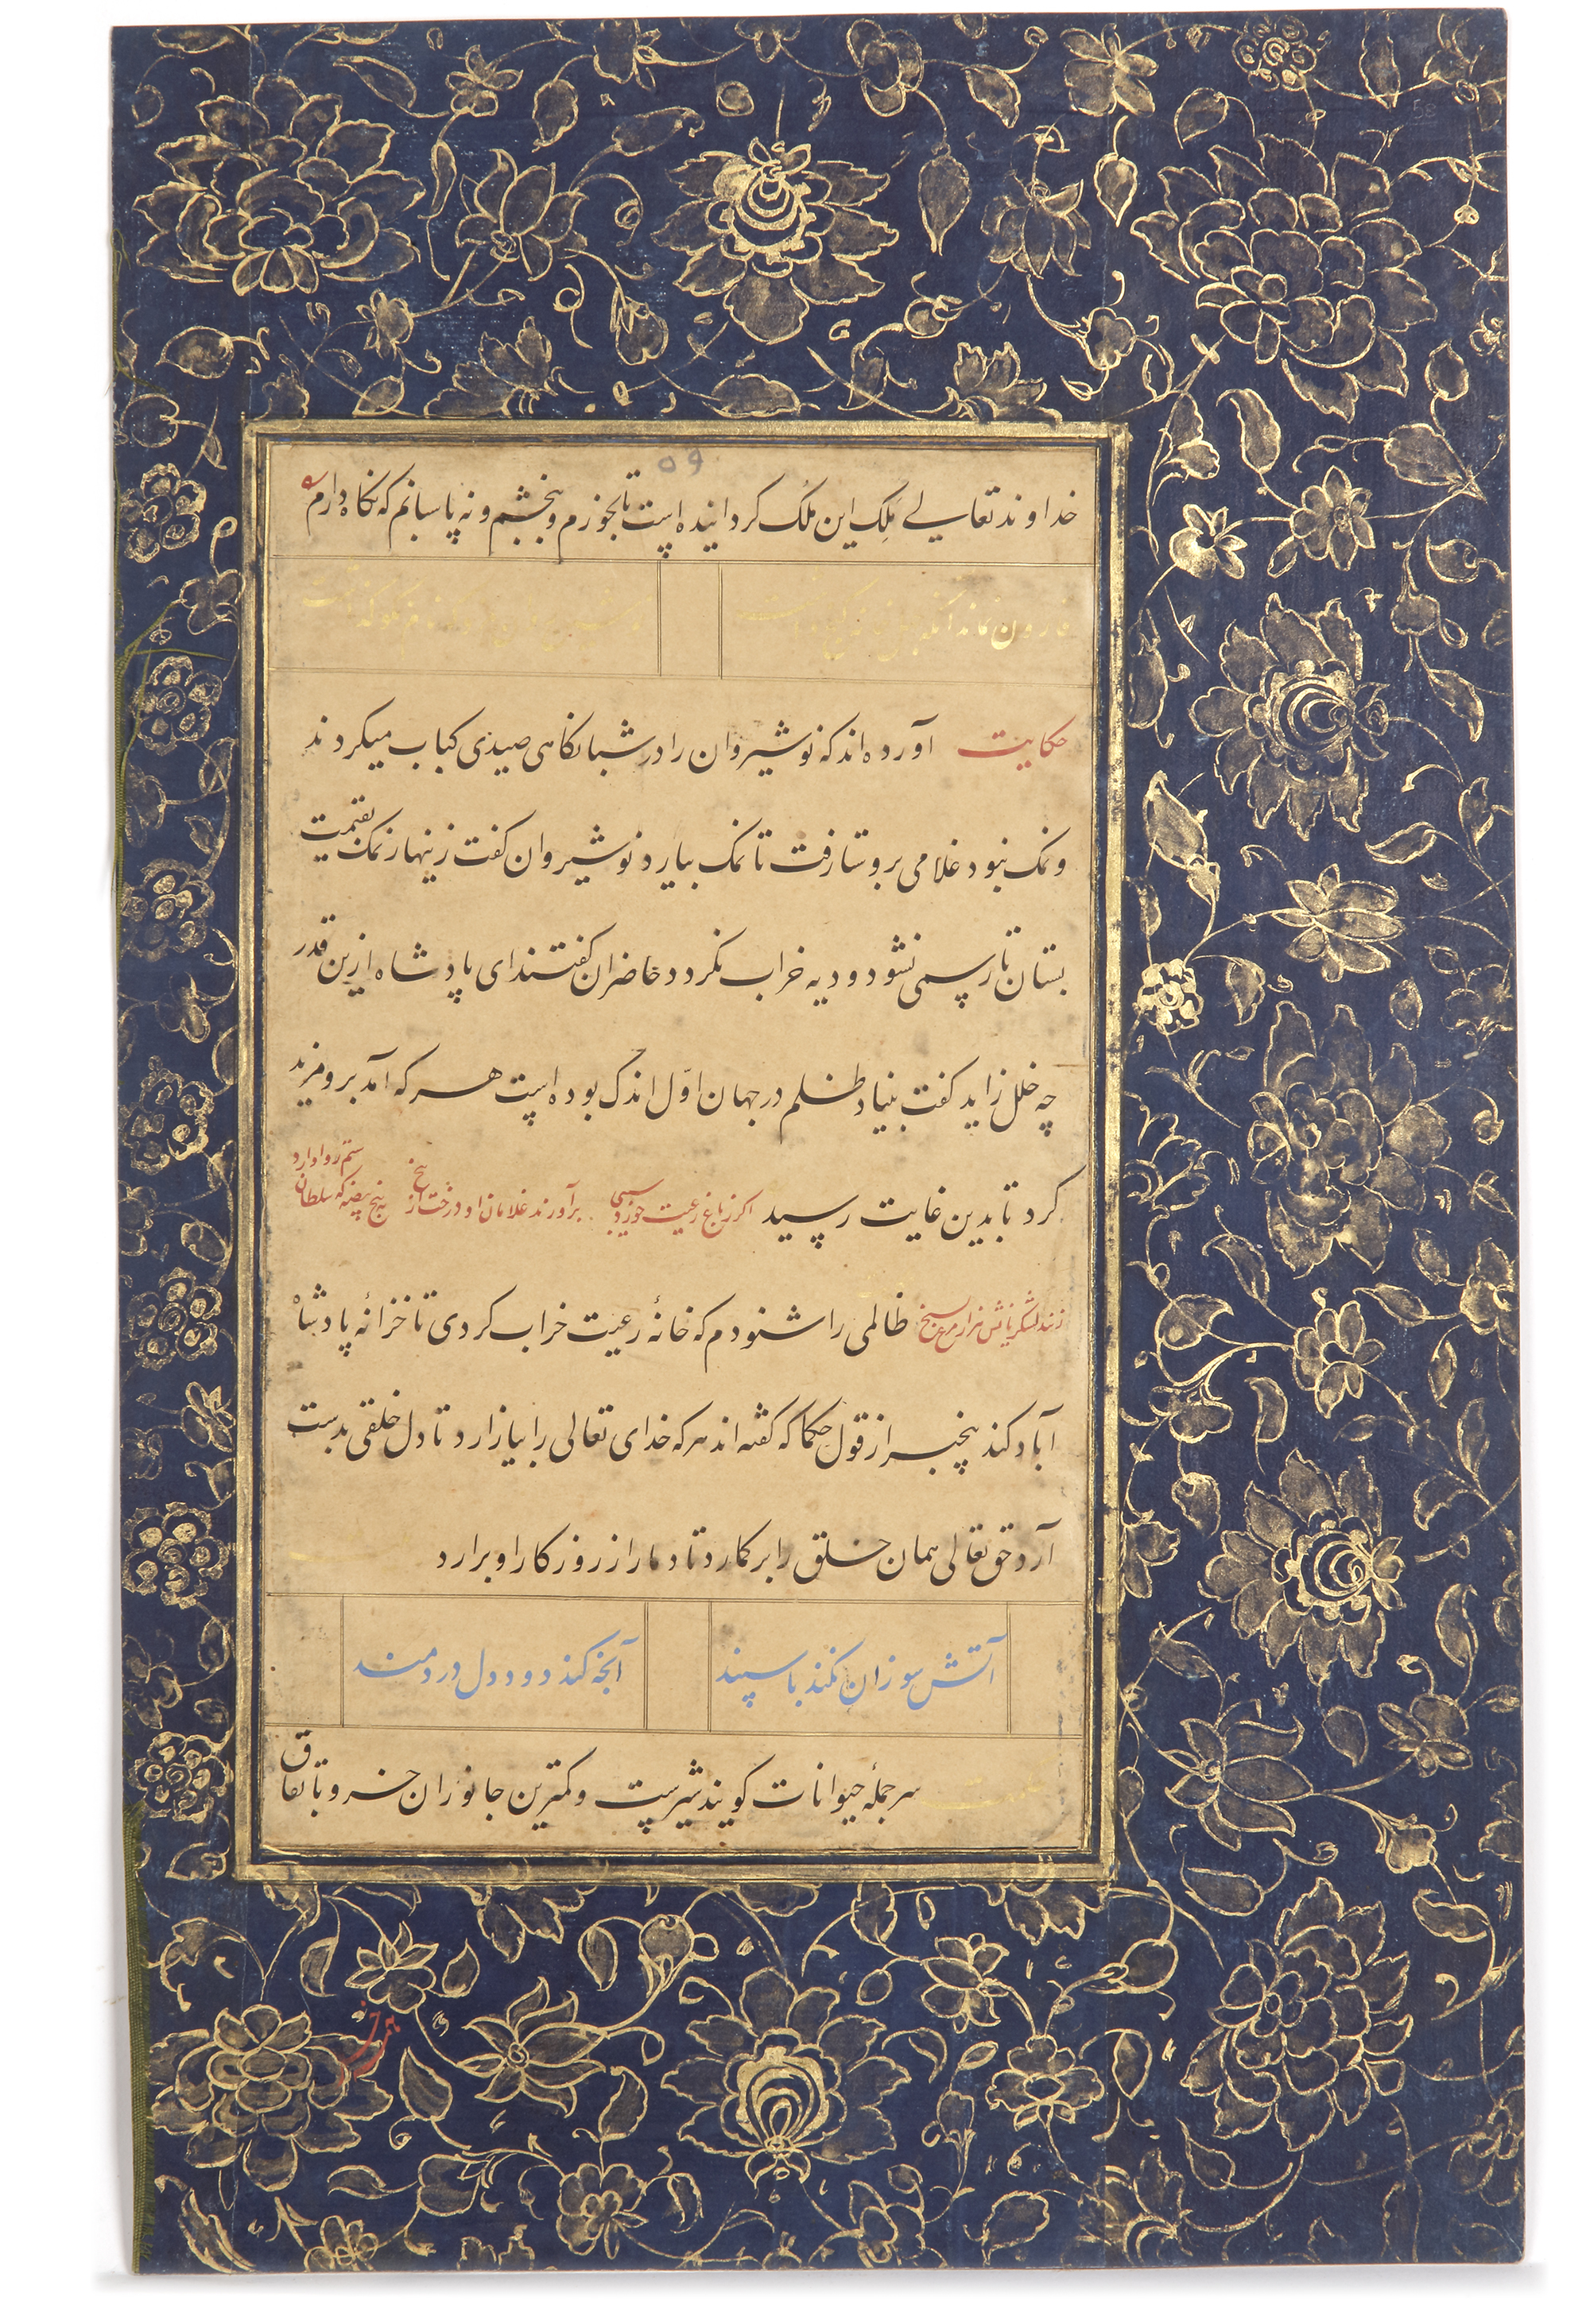 خداوند تعالی مَلِک این مُلک گردانیده است تا بخورم و ببخشم و نه پاسبانم که نگاه دارم
حکایت آورده‌اند که نوشیروان را در شبانگاهی صیدی کباب میکردند
و نمک نبود غلامی بروستا رفت تا نمک بیارد نوشیروان گفت زینهار نمک بقیمت
بستان تا رسمی نشود و دیه خراب نکردد حاضران گفتند ای پادشاه ازین قدر
چه خلل زاید گفت بنیاد ظلم در جهان اوّل اندک بوده است هر که آمد برو مزید
کرد تا بدین غایت رسید اگر ز باغ رعیت خورد سیبی برآورند غلامان او درخت از بیخ به پنج بیضه که سلطان ستم روا دارد
زنند لشکریانش هزار مرغ بسیخ ظالمی را شنودم که خانهٔ رعیت خراب کردی تا خزانهٔ پادشاه
آباد کند بیخبر از قول حکما که گفته‌اند هر که خدای تعالی را بیازارد تا دل خلقی بدست
آرد حق تعالی همان خلق را برگمارد تا دمار از روزگار او برارد
آتش سوزان نکند با سپند آنچه کند دود دل دردمند
سر جملهٔ حیوانات گویند شیرست و کمترین جانوران خر و باتفاق